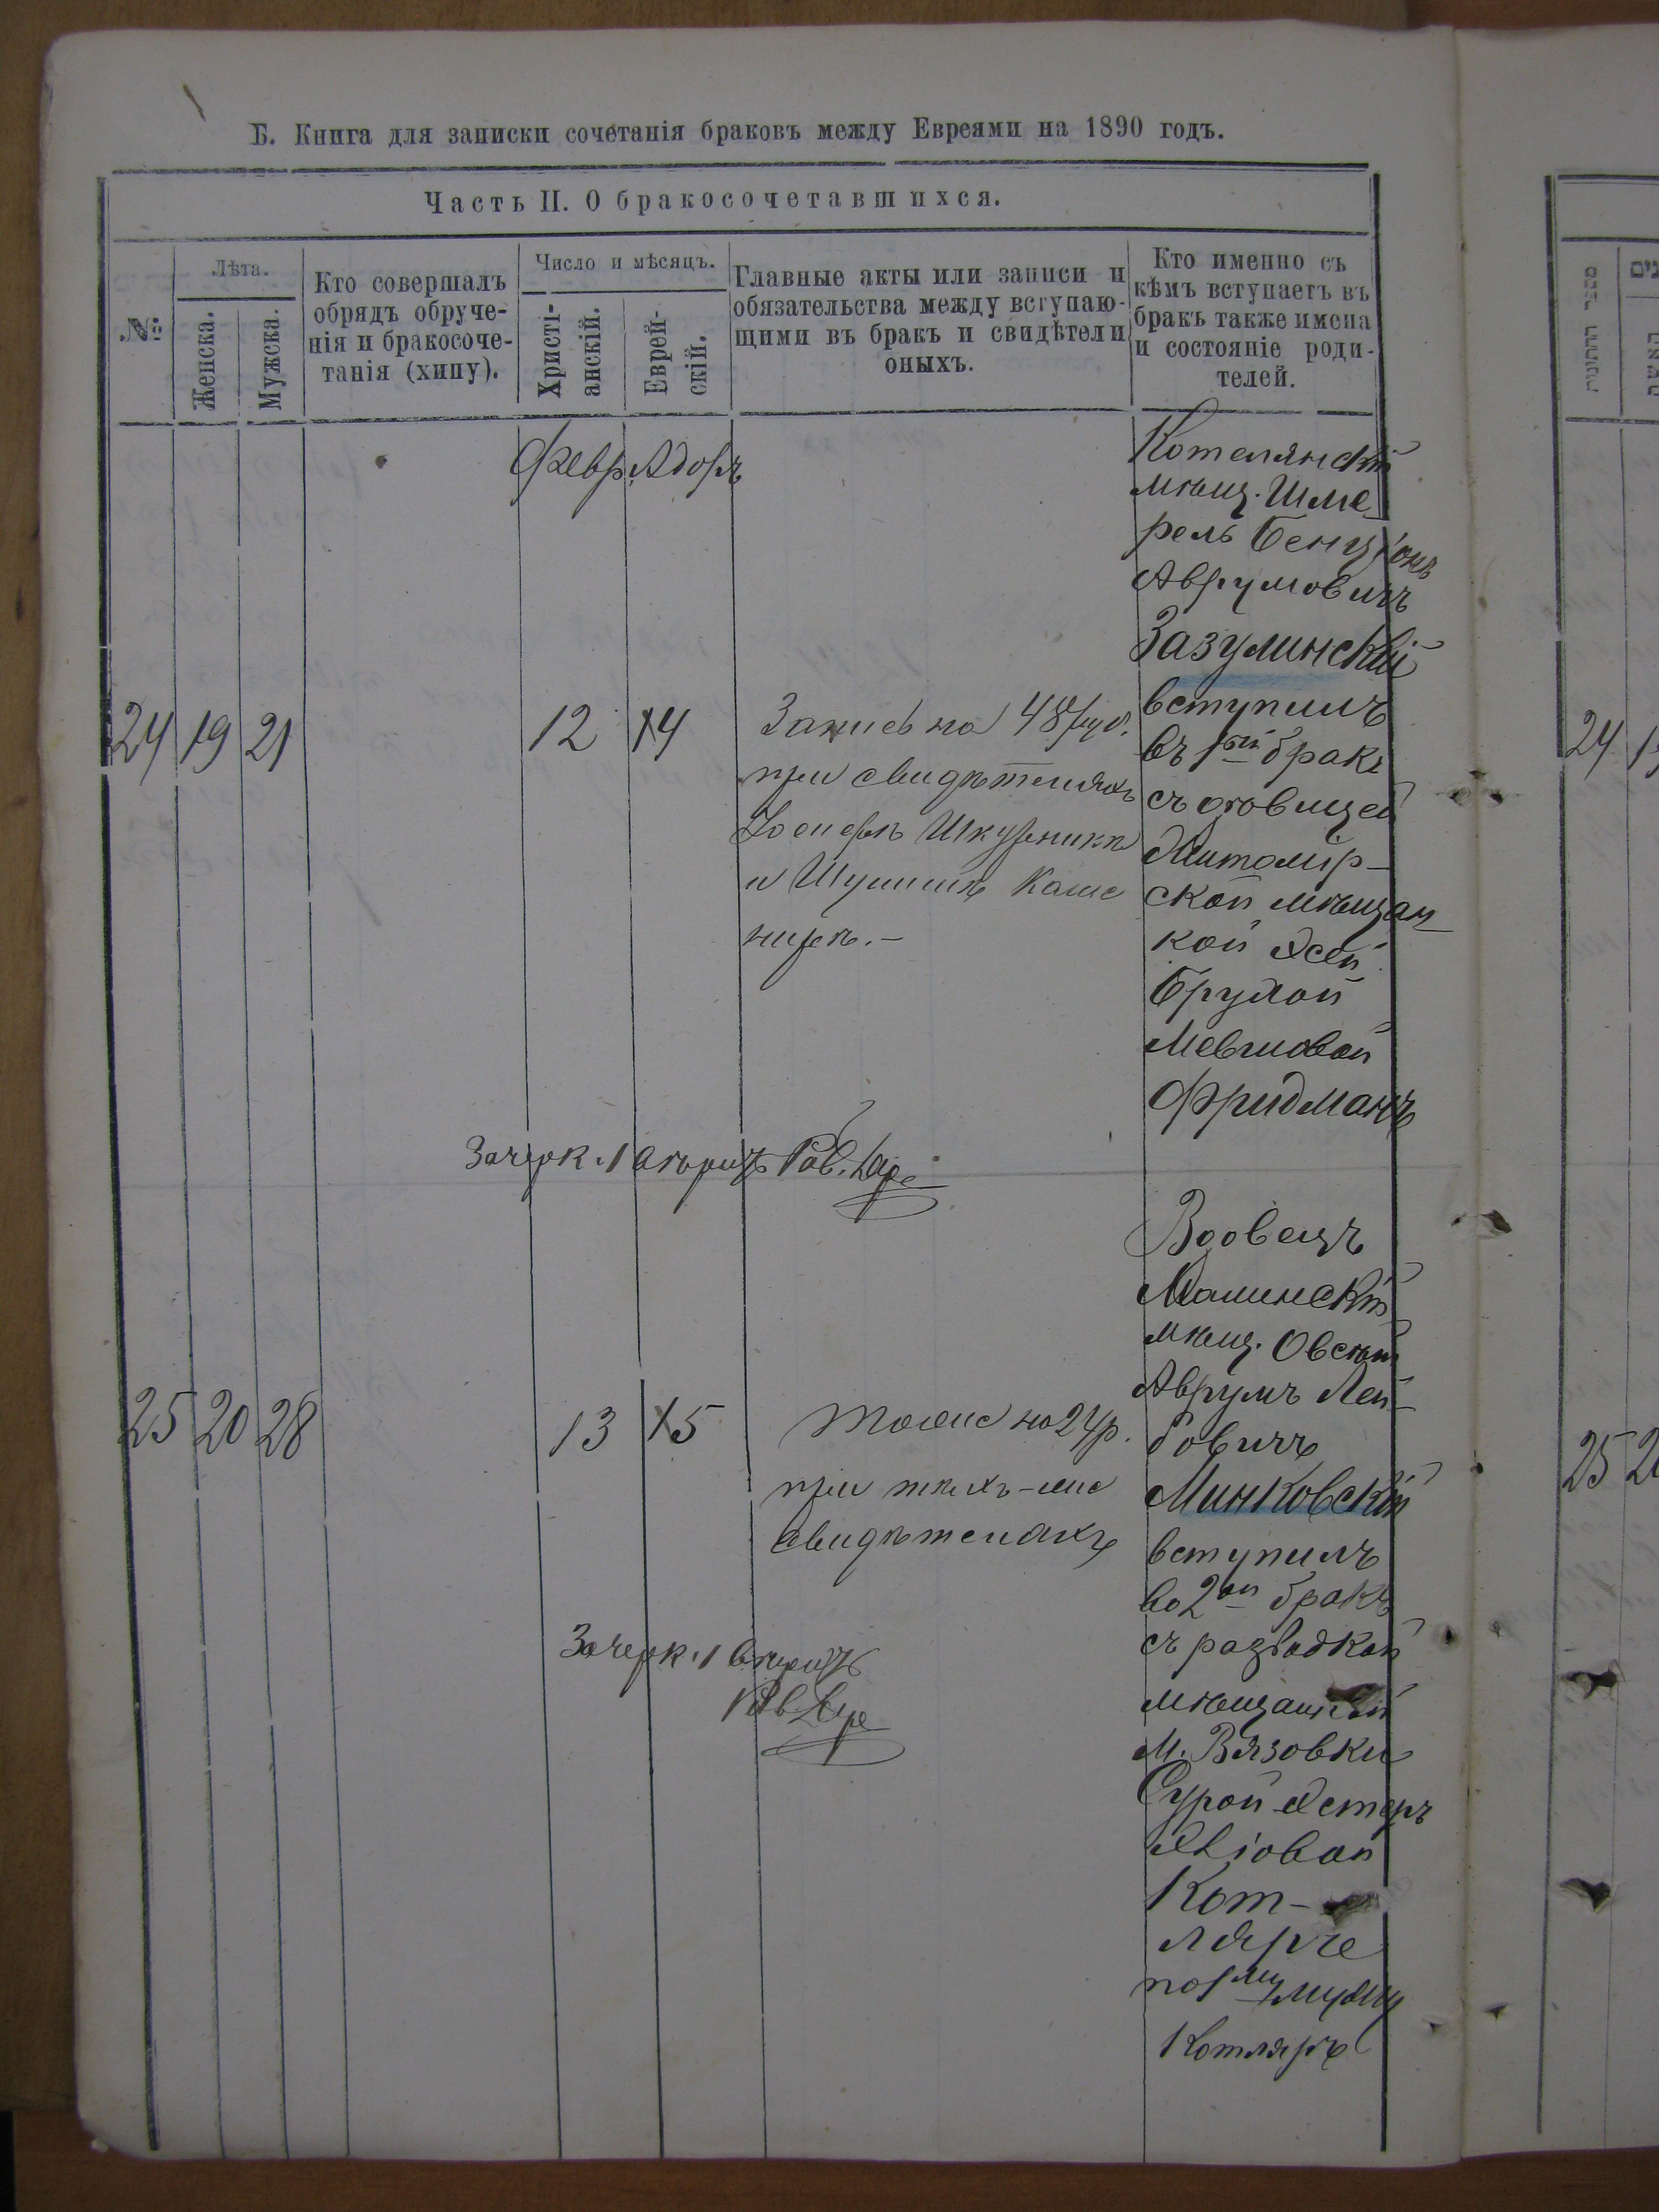 Б. Книга для записки сочетанія браковъ между Евреями на 1890 годъ.
Часть II. О бракосочетавшихся.
№
Лѣта.
Женска.
Мужска.
Кто совершалъ
обрядъ обруче-
нія и бракосоче-
танія (хипу).
Число и мѣсяцъ.
Христі-
анскій.
Еврей-
скій.
Главные акты или записи и
обязательства между вступаю-
щими въ бракъ и свидѣтели
оныхъ.
Кто именно съ
кѣмъ вступаетъ въ
бракъ также имена
и состояніе роди-
телей.
Февр. Адоръ
24 19 21
12 4
Запись на 48 руб.
при свидѣтеляхъ
Іосифѣ Шкурникѣ
и Шулимѣ
Котелянскій
мѣщ. Шме-
рель Бенціонъ
Аврумовичъ
Зазулинскій
вступилъ
въ 1ый бракъ
съ дѣвицей
Житомір-
ской мѣщан-
кой
Фридманъ
Зачерк. 1 Рав.
25 20 28
13 5
тоже на 24 р.
при тѣхъ-же
свидѣтеляхъ
Зачерк. 1
Рав.
Вдовецъ
Малинскій
мѣщ. Овсѣй
Аврумъ Лей-
бовичъ
Минковскій
вступилъ
во 2ой бракъ
съ разводкой
мѣщанкой
м. Вязовки
Сурой Эстеръ
Кот-
ляръ
по 1му мужу
Котляръ
24
25
מספר החתונות